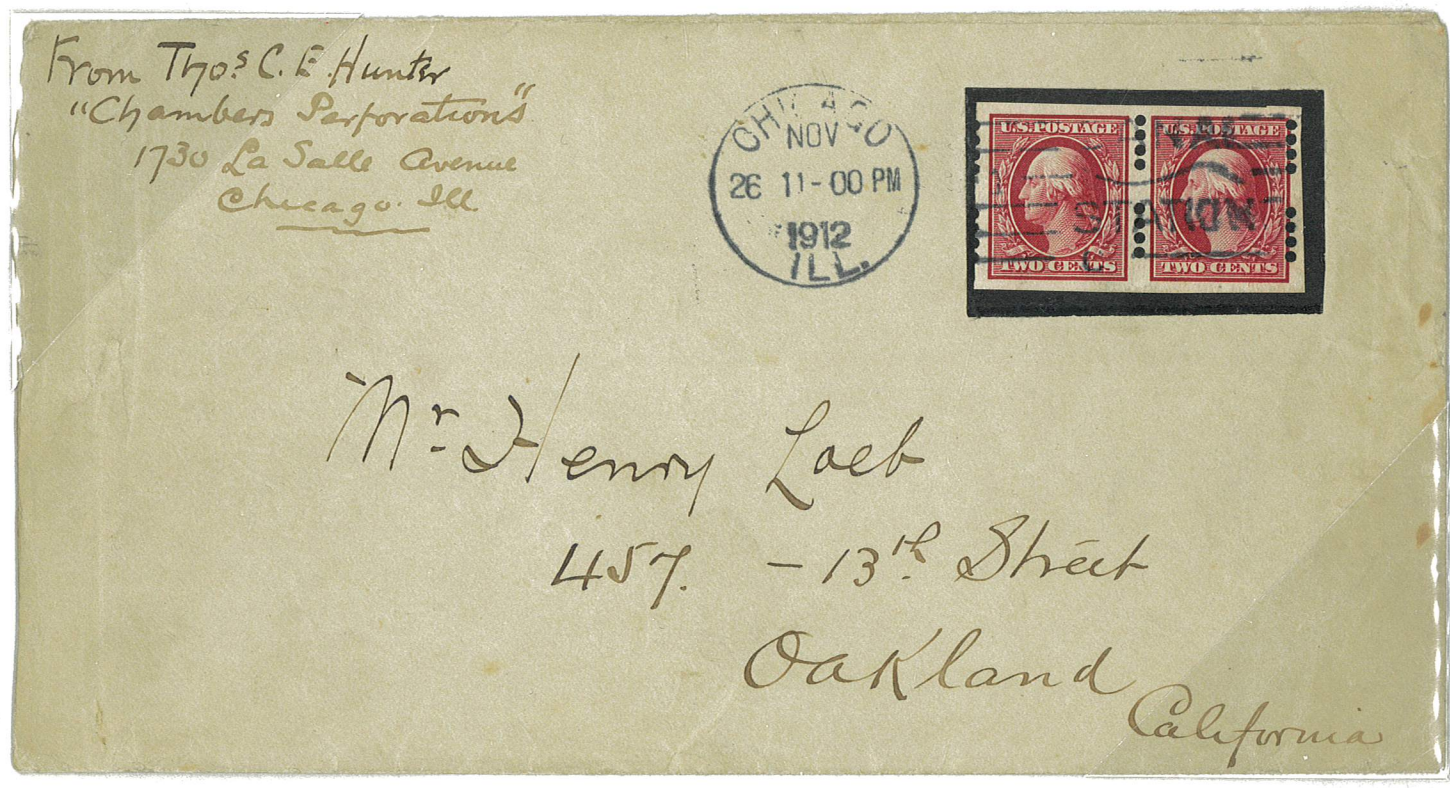 From Thos. C. E. Hunter
"Chambers Perforations"
1730 La Salle Avenue
Chicago. Ill
CHICAGO
NOV
26 11-00 PM
1912
ILL.
U.S. POSTAGE
TWO CENTS
U.S. POSTAGE
TWO CENTS
STATION
C
Mr. Henry Loeb
457. - 13th. Street
Oakland
California